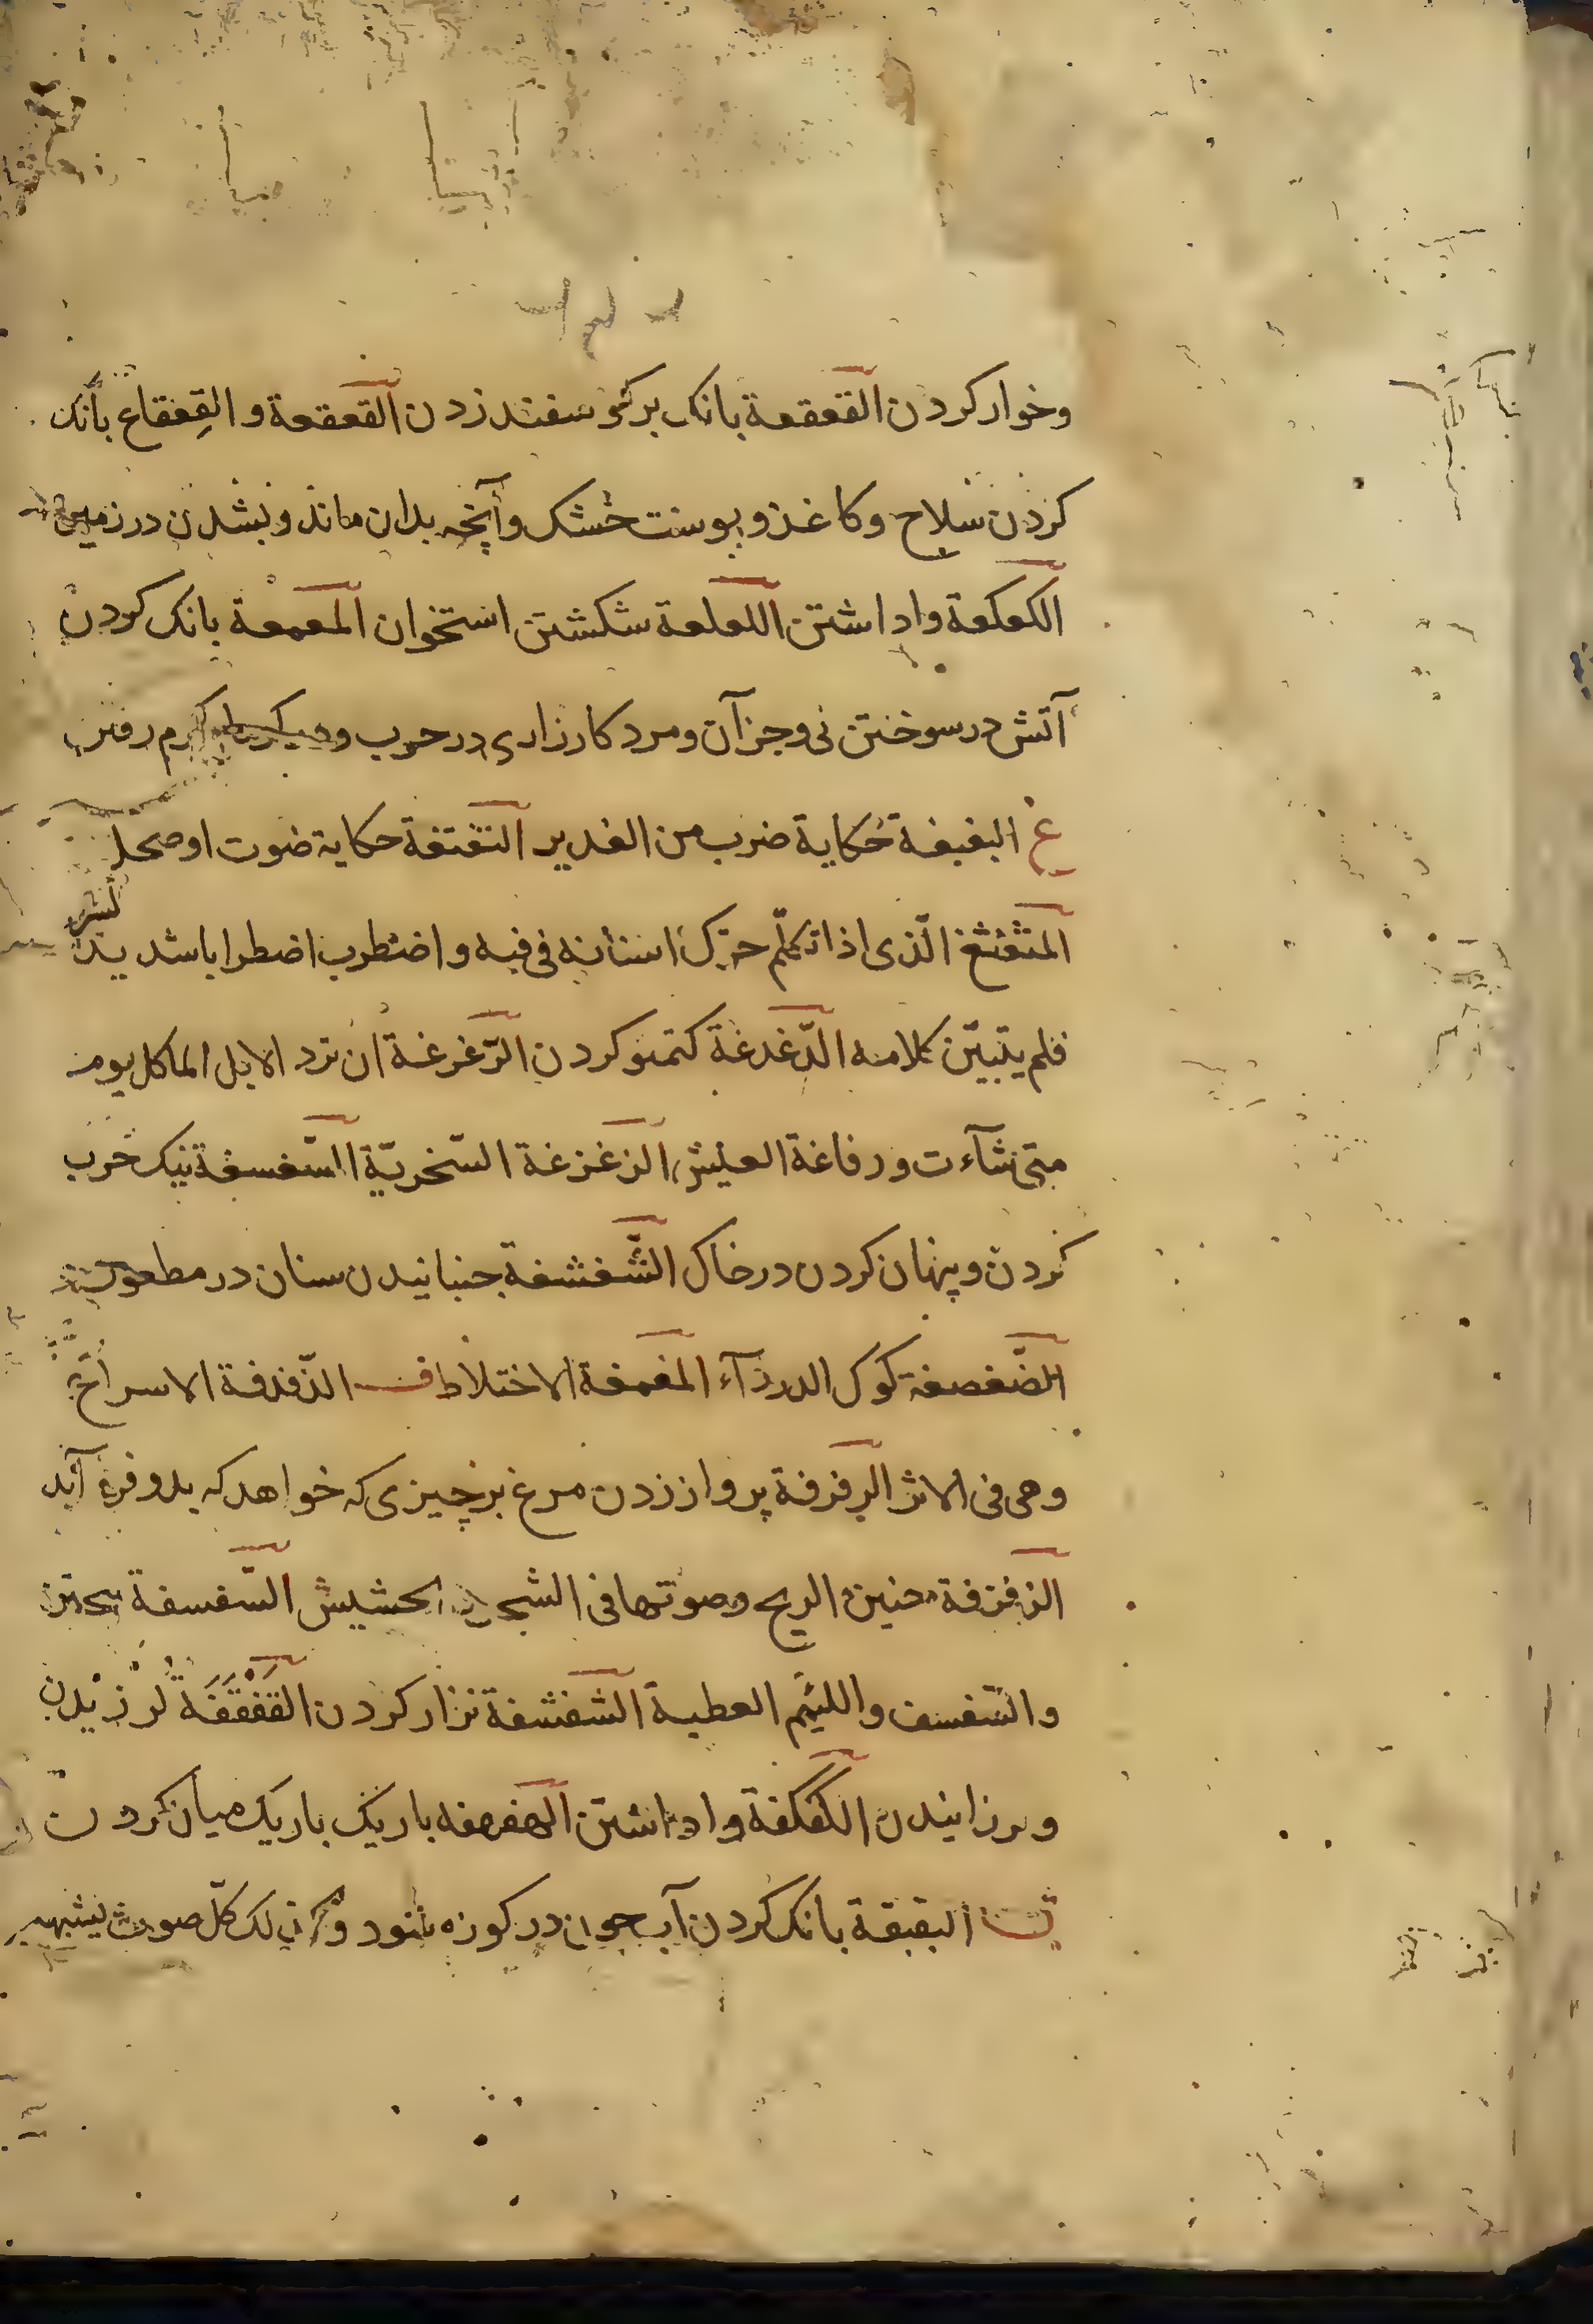 وخوار كردن القعقعة بانك بر كوسفند زدن القعقعة والقِعقاع بانك
كردن سلاح وكاغذ وپوست خشك وآنچه بدان ماند وبشدن در زمين
الكعكعة واداشتن اللعلعة شكستن استخوان المعمعة بانك كردن
آتش در سوختن نى وجز آن ومرد كارزارى در حرب و كرم رفتن
غ البغبغة حكاية ضرب من الهدير التغتغة حكاية صوت او
المثغثغ الّذى اذا تكلّم حرّك اسنانه فى فيه واضطرب اضطرابا شديدا
فلم يتبيّن كلامه الدّغدغة كردن الرّغرغة ان ترد الابل الما كل يوم
متى شآءت ورفاغة العيش الزغزغة السّخريّة السّغسغة نيك چرب
كردن وپنهان كردن در خاك الشّغشغة جنبانيدن سنان در مطعون
الضّغضغة لوك الدردآء المغمغة الاختلاط ف الذّفذفة الاسراع
وهى فى الاثر الرفرفة پرواز زدن مرغ بر چيزى كه خواهد كه بدو فرو آيد
الزفزفة حنين الريح وصوتها فى الشجر الحشيش السّفسفة بيختن
والسّفسف واللئيم العطية الشفشفة نزار كردن القَفْقَفَة لرزيدن
ولرزانيدن الكفكفة واداشتن الهفهفه باريك باريك ميان كردن
ق البقبقة بانك كردن آب چون در كوزه شود وكذلك كلّ صوت يشبهه